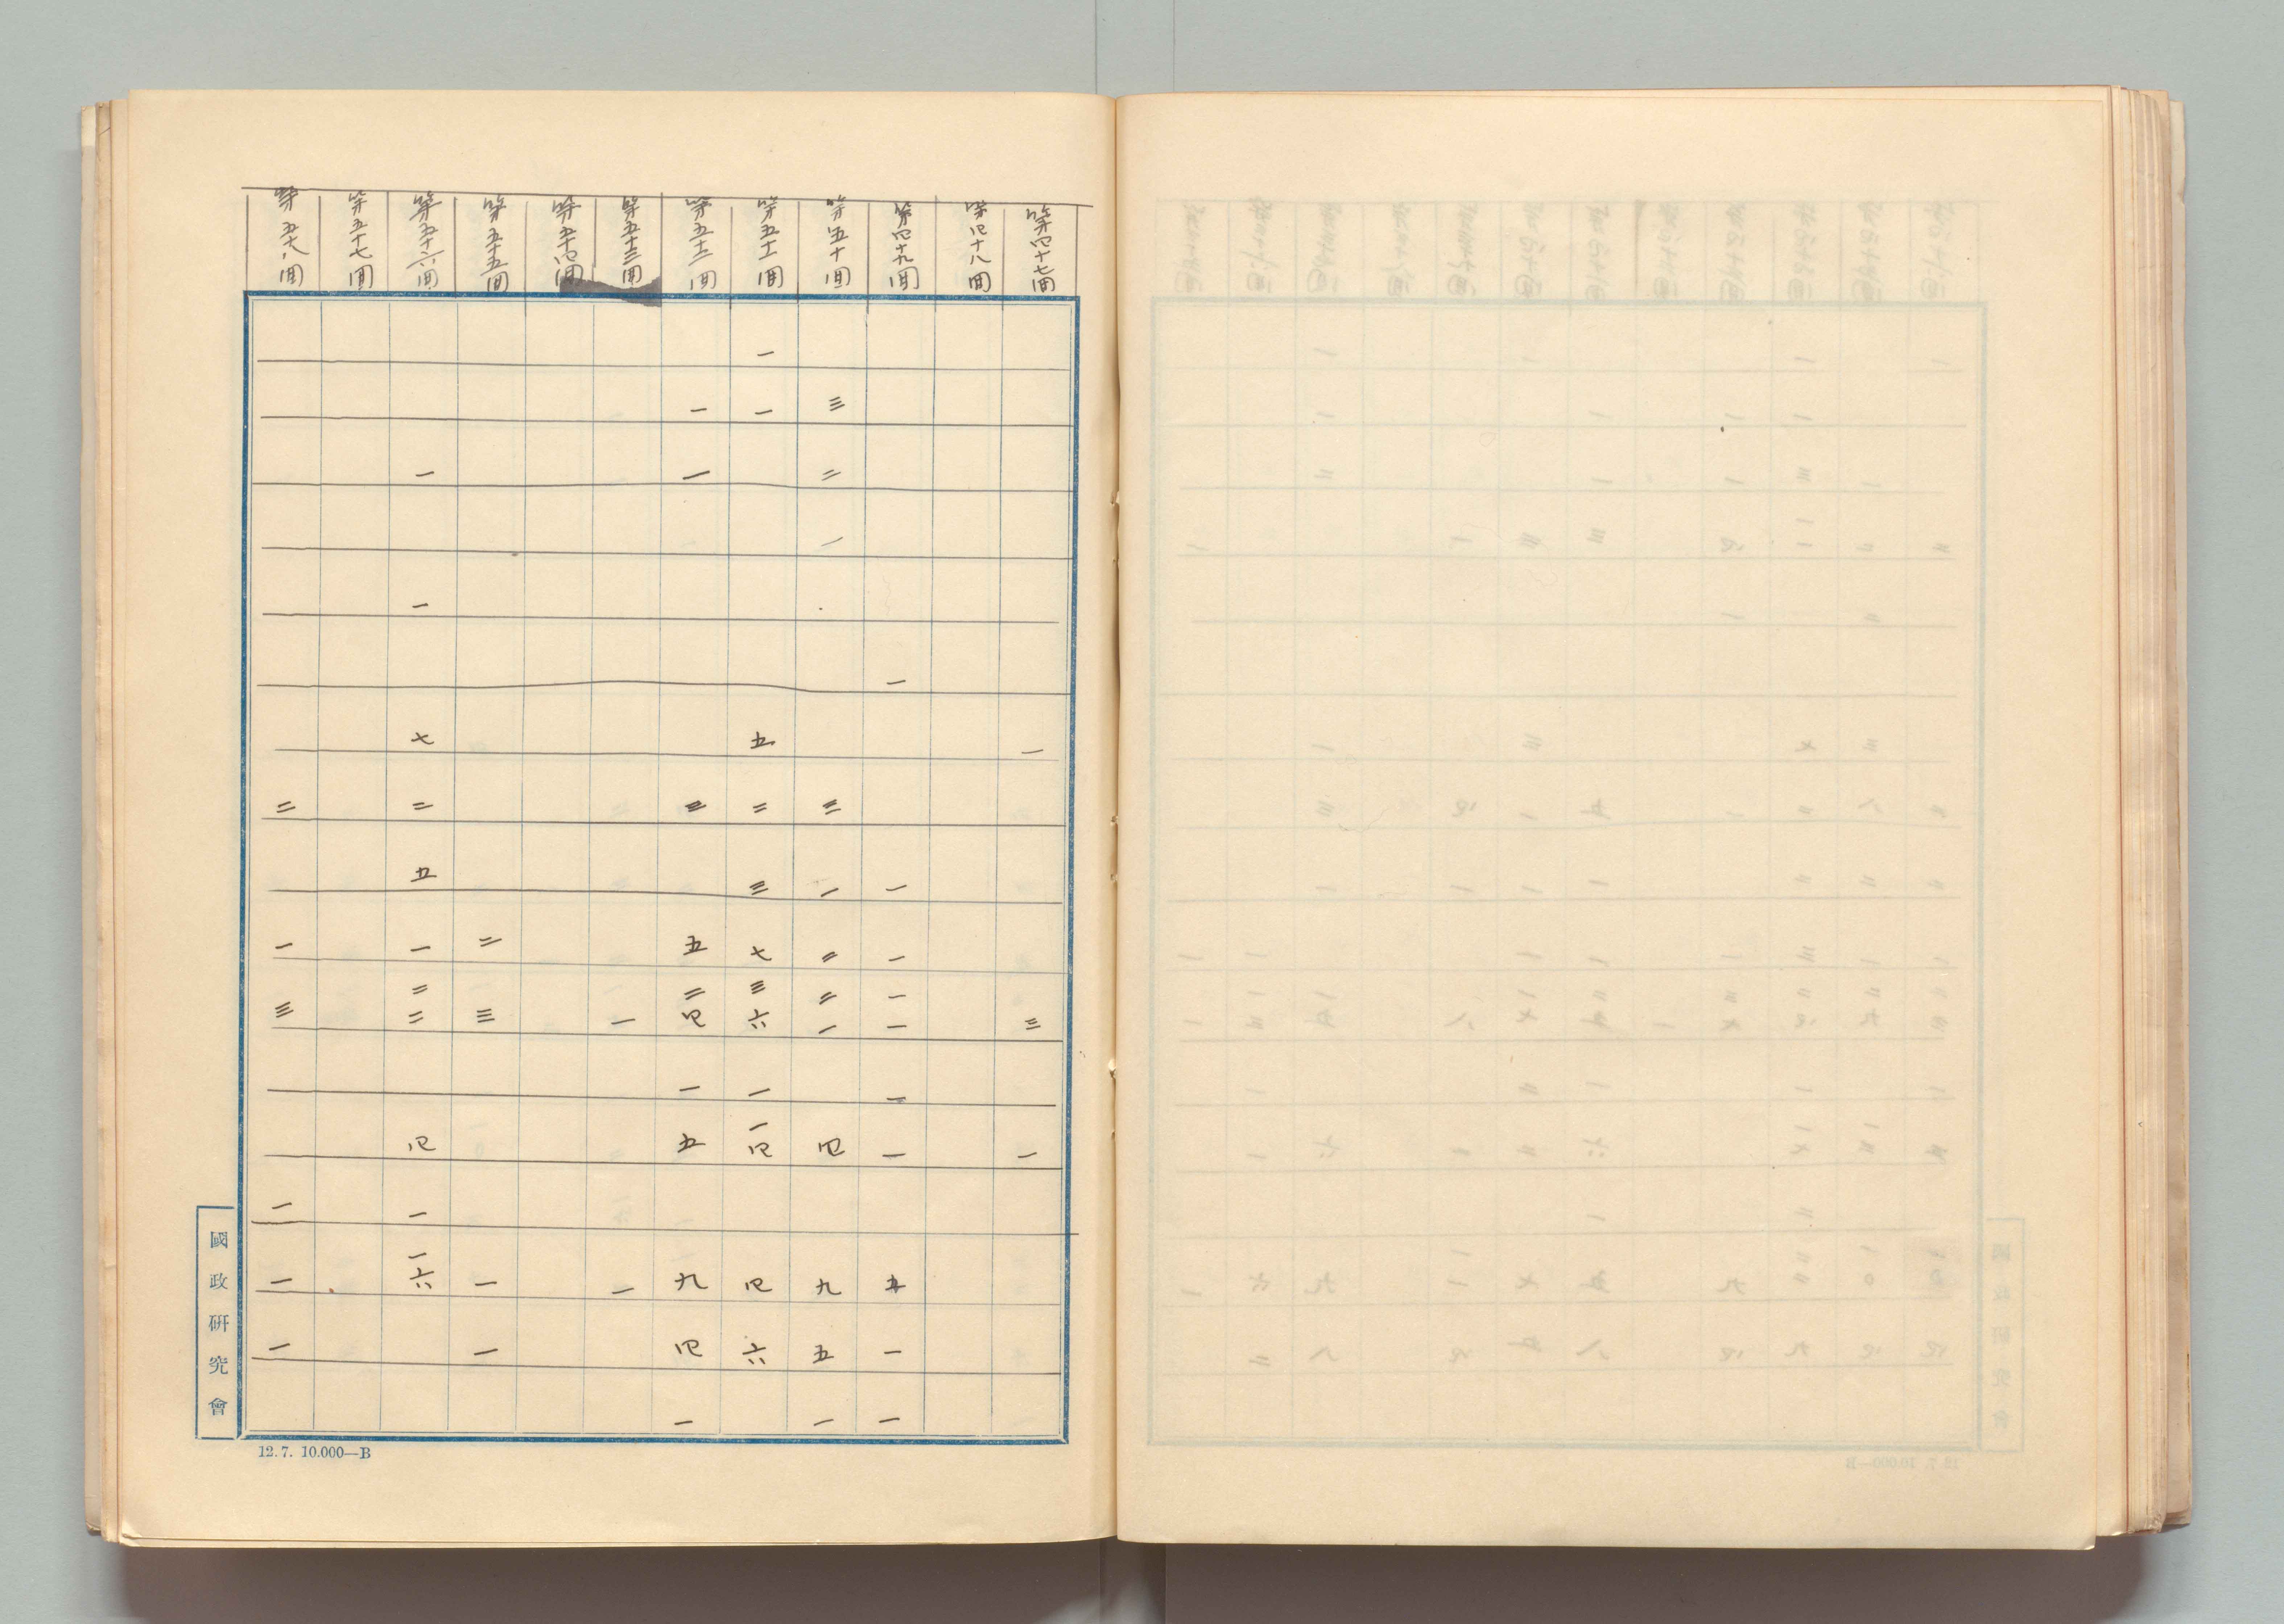 第四十七囘 一 三 一
第四十八囘
第四十九囘 一 一 一 一一 一 一 五 一 一
第五十囘 三 二 一 三 一 二 二一 四 九 五 一
第五十一囘 一 一 五 二 三 七 三六 一 一四 四 六
第五十二囘 一 一 三 五 二四 一 五 九 四 一
第五十三囘 一 一
第五十四囘
第五十五囘 二 三 一 一
第五十六囘 一 一 七 二 五 一 二二 四 一 一六
第五十七囘
第五十八囘 二 一 三 一 一 一
國政研究會
12.7. 10.000—B